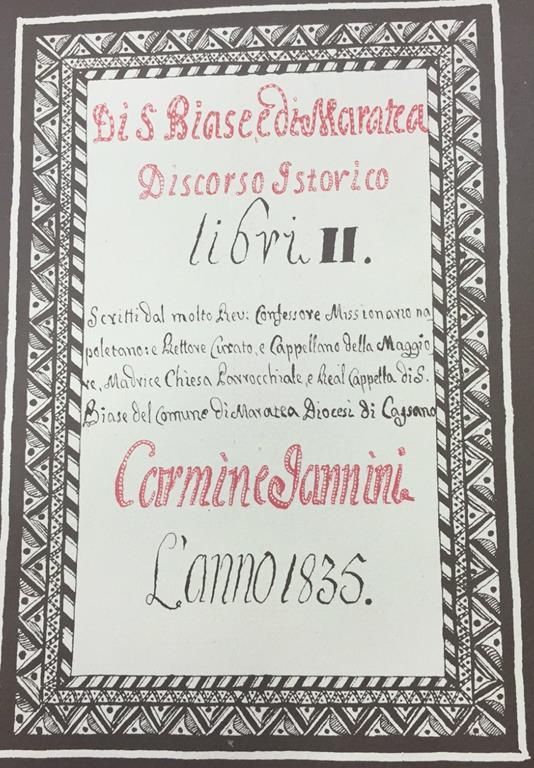 Di S Biase, E di Maratea
Discorso Istorico
libri II.
Scritti dal molto Rev: Confessore Missionario na
poletano: e Rettore Curato, e Cappellano della Maggio
re, Madrice Chiesa Parrocchiale, e Real Cappella di S.
Biase del Comune di Maratea Diocesi di Cassano
Carmine Iannini.
L'anno 1835.